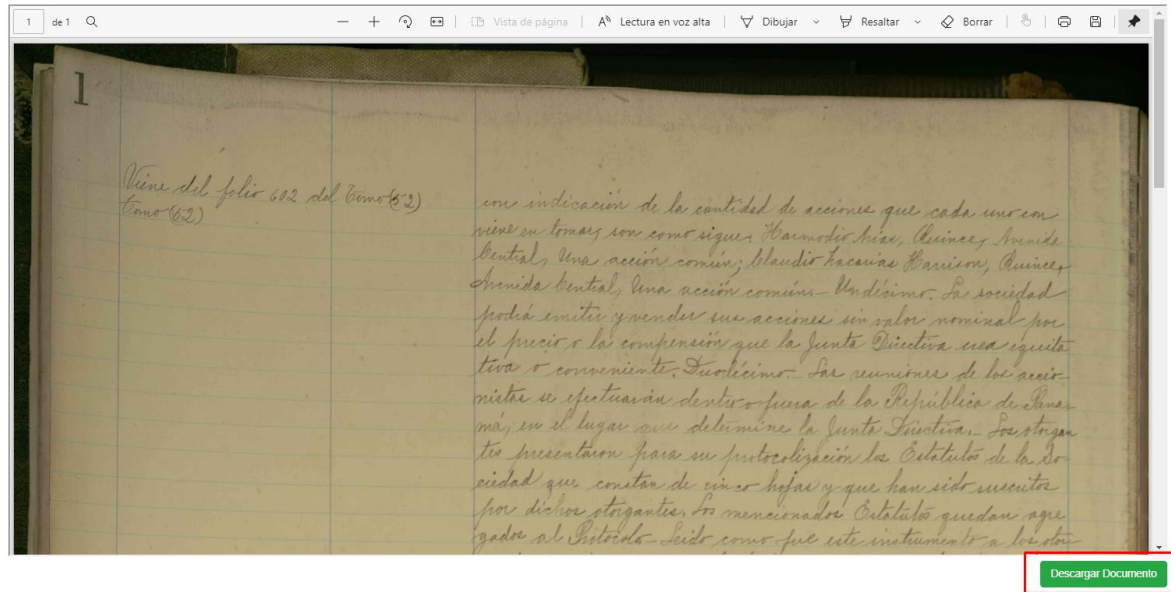 1 de 1 Vista de página Lectura en voz alta Dibujar Resaltar Borrar
1
Viene del folio 602 del Tomo (52)
Tomo (52)
con indicación de la cantidad de acciones que cada uno con
viene en tomar, son como sigue: Harmodio Arias, Quince, Avenida
Central, Una acción común; Claudio Zacarías Harrison, Quince,
Avenida Central, Una acción común.- Undécimo. La sociedad
podrá emitir y vender sus acciones sin valor nominal por
el precio o la compensión que la Junta Directiva crea equita
tiva o conveniente. Duodécimo.- Las reuniones de los accio-
nistas se efectuarán dentro o fuera de la República de Pana-
má, en el lugar que determine la Junta Directiva.- Los otorgan
tes presentaron para su protocolización los Estatutos de la So-
ciedad que constan de cinco hojas y que han sido suscritos
por dichos otorgantes. Los mencionados Estatutos quedan agre
gados al Protocolo - Leido como fue este instrumento a los otor
Descargar Documento